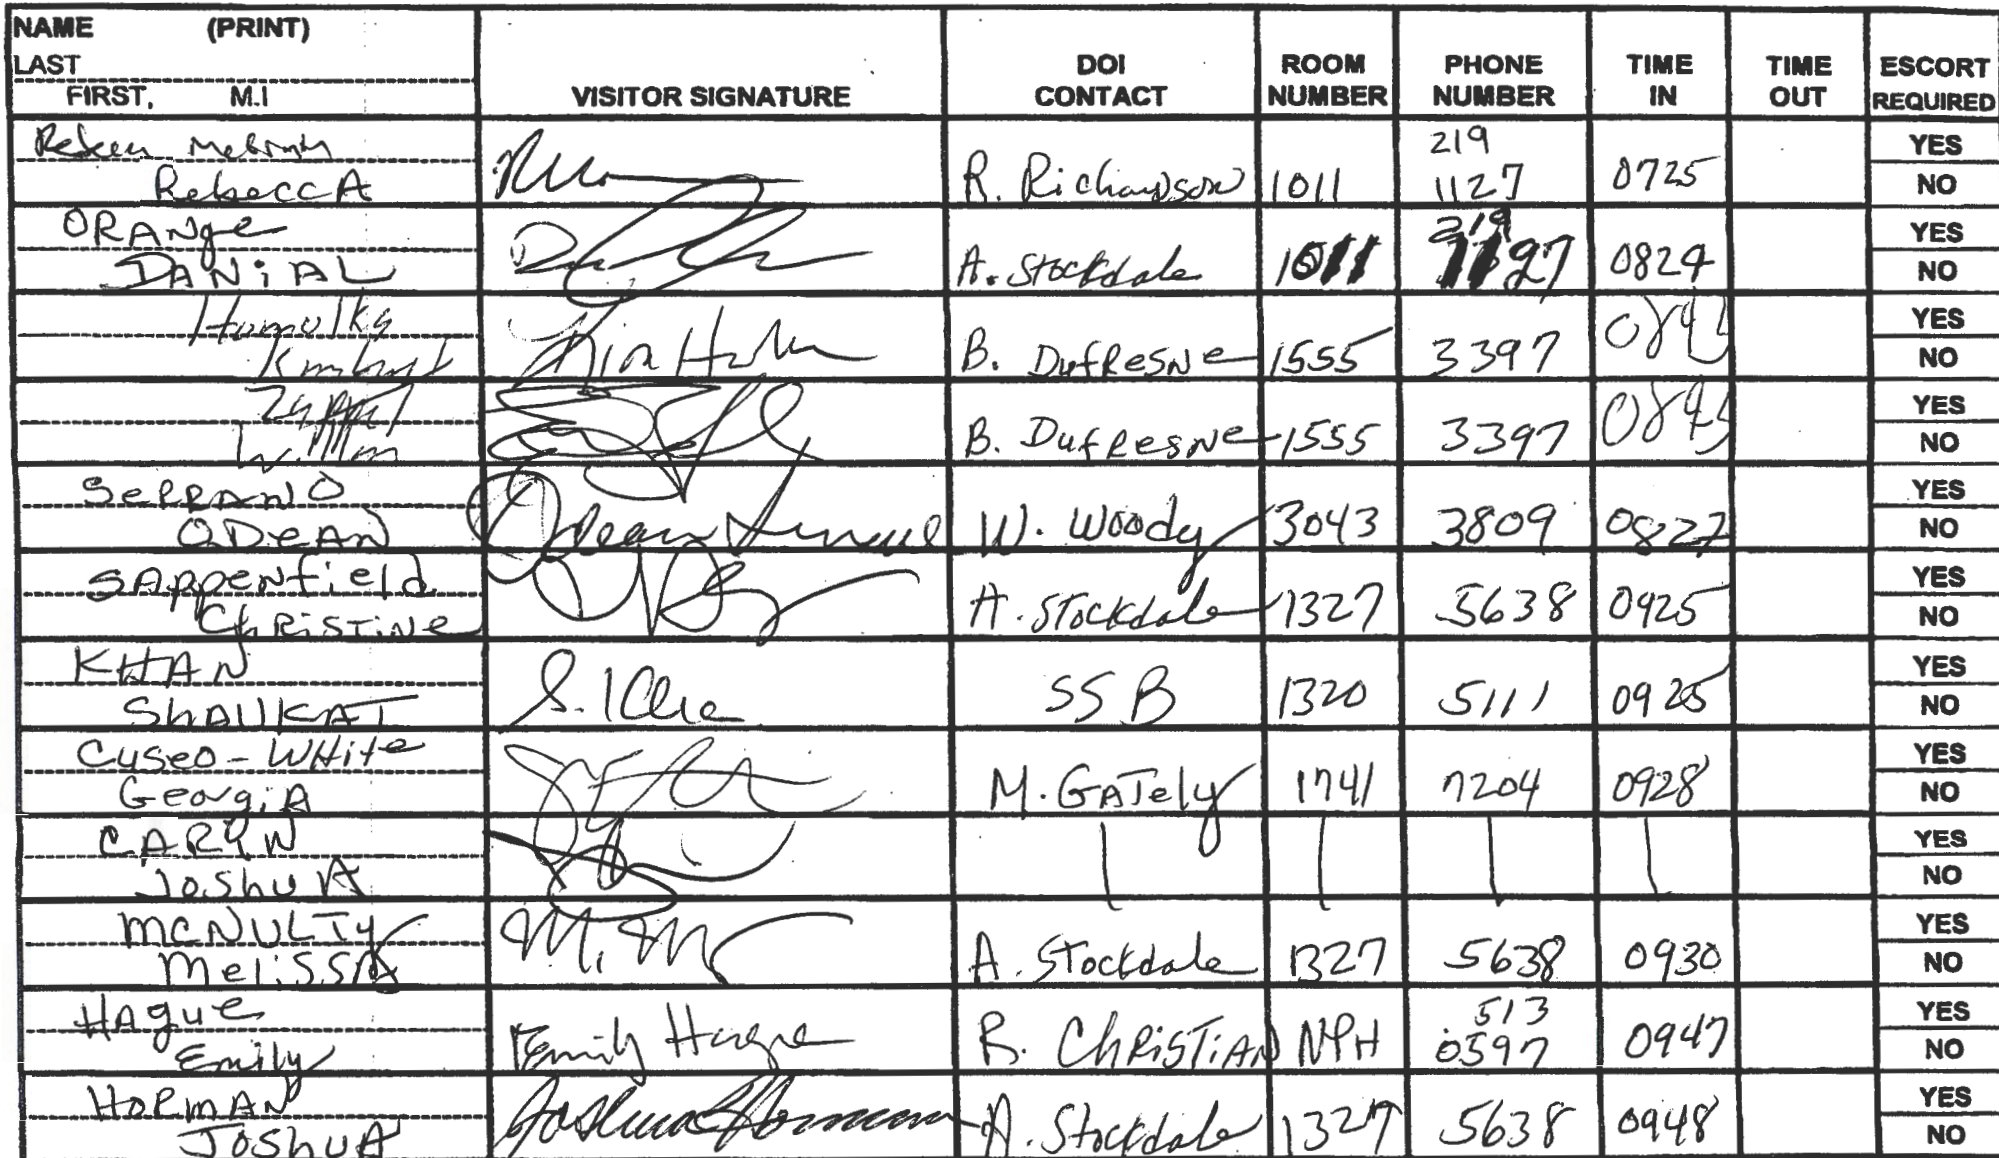 NAME (PRINT)
LAST
FIRST, M.I
VISITOR SIGNATURE
DOI CONTACT
ROOM NUMBER
PHONE NUMBER
TIME IN
TIME OUT
ESCORT REQUIRED
RebeccA R. Richardson 1011 219 1127 0725 YES NO
ORANge
DANiAL A. Stockdale 1011 219 1127 0824 YES NO
Homolka
B. DufResne 1555 3397 YES NO
B. DufResne 1555 3397 0845 YES NO
SeRRANO
ODeAN Odean W. Woody 3043 3809 0827 YES NO
SAppenfield
ChRiSTiNe A. Stockdale 1327 5638 0925 YES NO
KHAN
ShAUKAT SSB 1320 5111 0925 YES NO
Cuseo-WHite
GeorgiA M. GATely 1741 7204 0928 YES NO
CARYN
JoshuA YES NO
MCNULTY
MeliSSA A. Stockdale 1327 5638 0930 YES NO
HAgue
Emily Emily Hague R. ChRiSTiAN NPH 513 0597 0947 YES NO
HORMAN
JoshuA Joshua Horman A. Stockdale 1327 5638 0948 YES NO